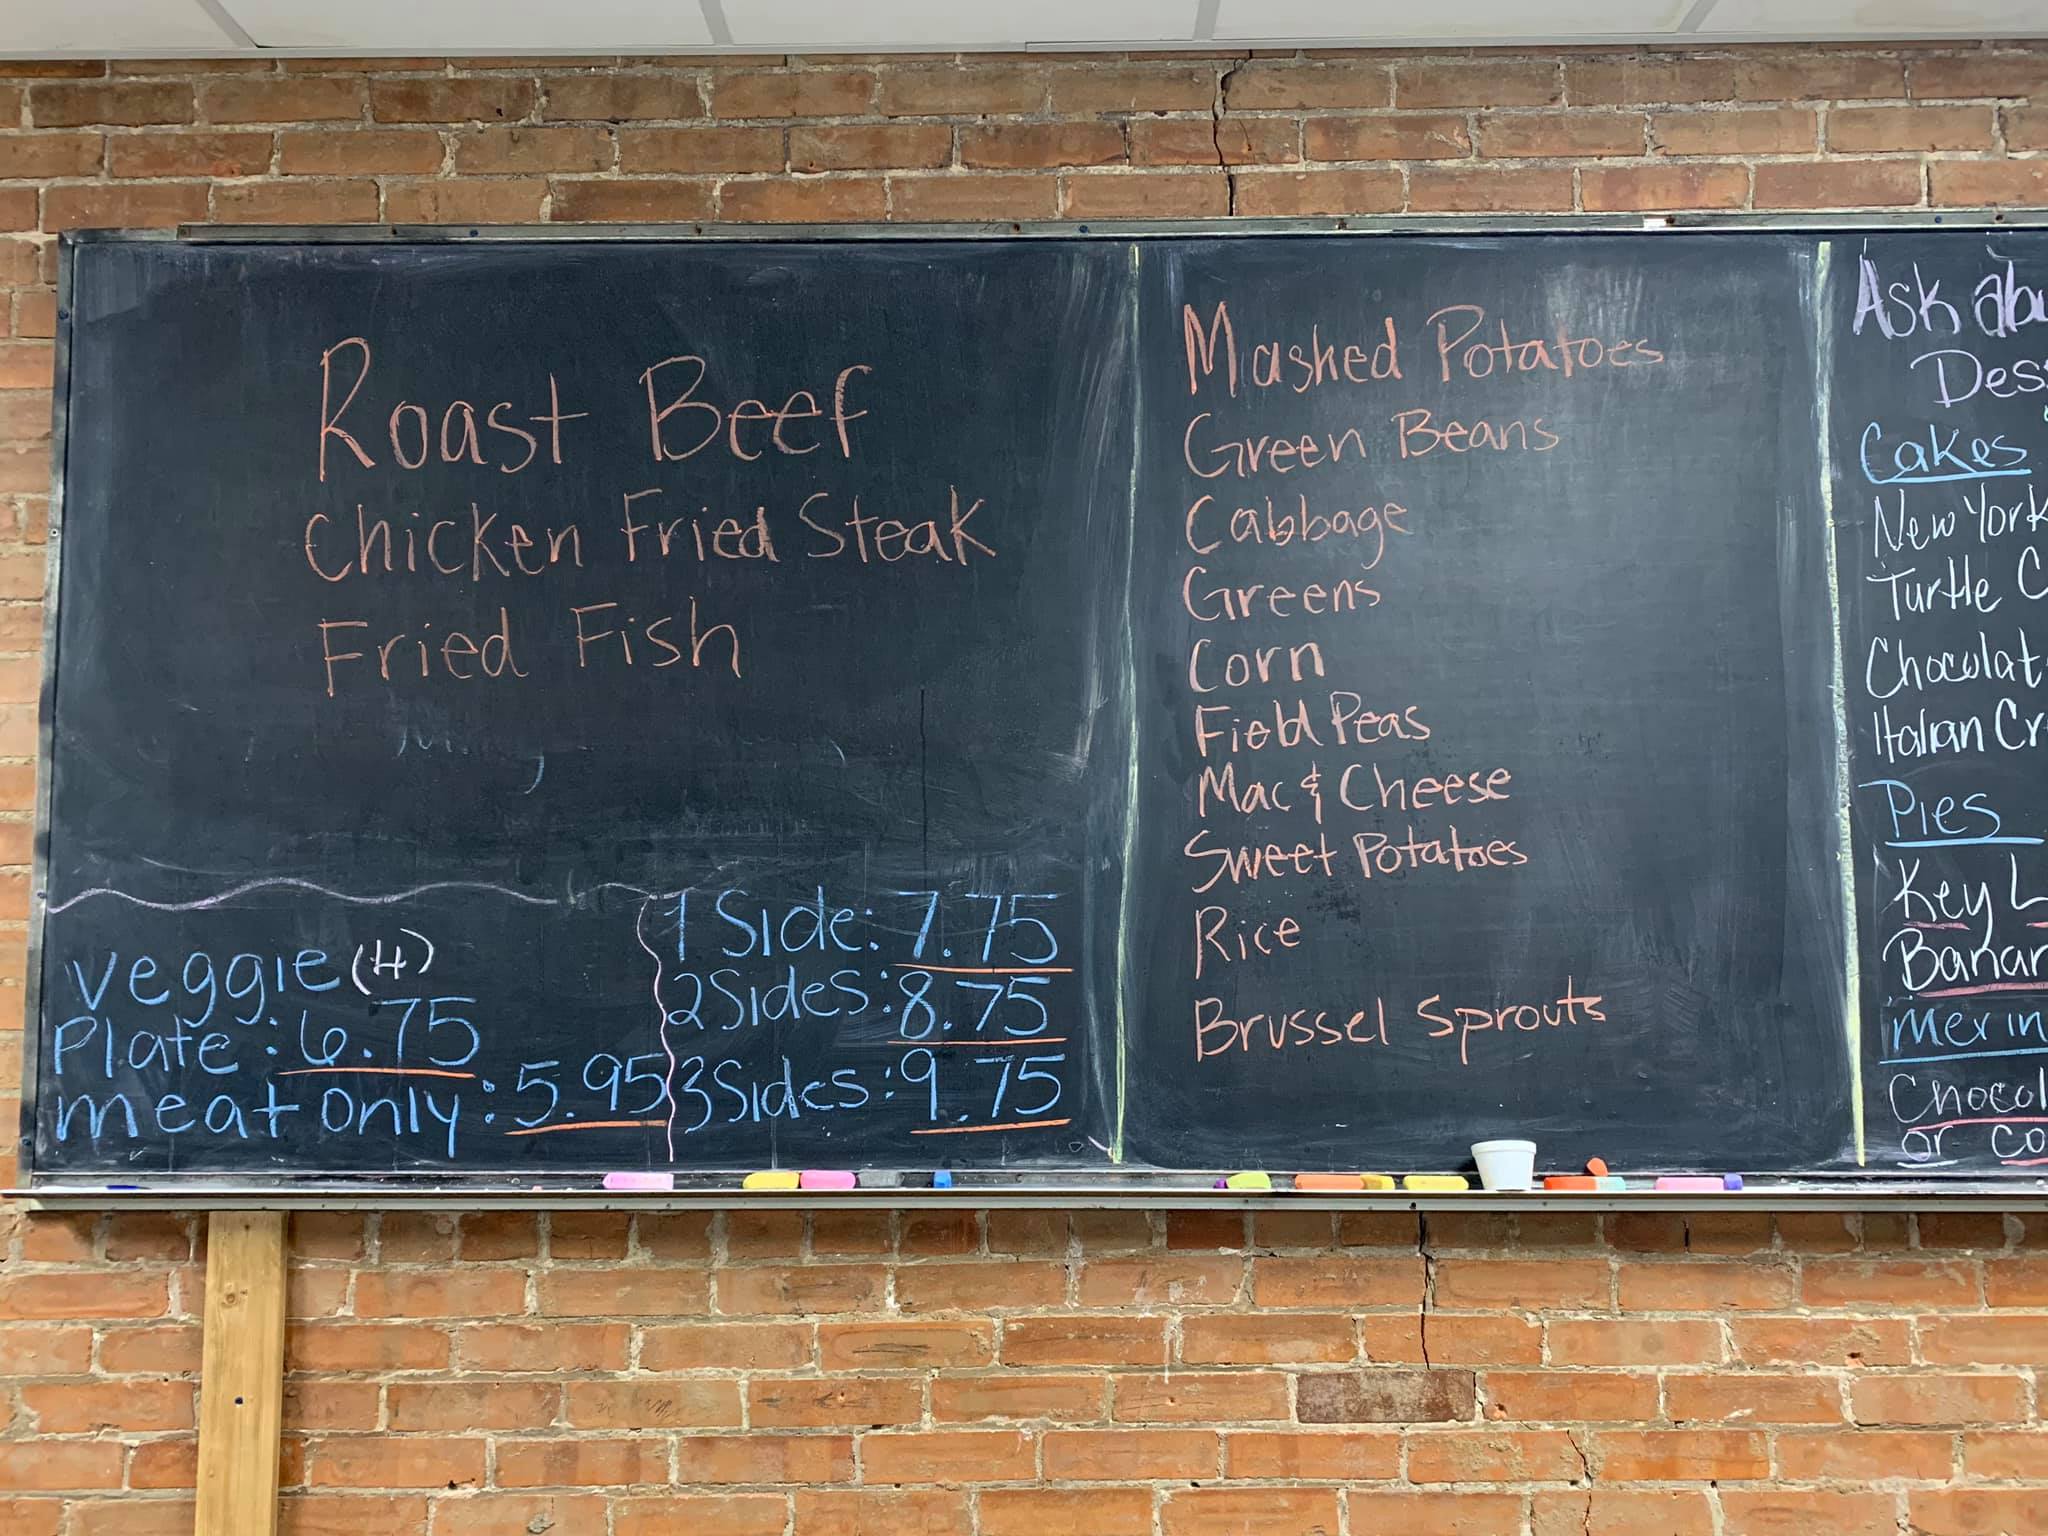 Roast Beef
Chicken Fried Steak
Fried Fish
veggie (4)
Plate: 6.75
meat only: 5.95
1 Side: 7.75
2 Sides: 8.75
3 Sides: 9.75
Mashed Potatoes
Green Beans
Cabbage
Greens
Corn
Field Peas
Mac & Cheese
Sweet Potatoes
Rice
Brussel Sprouts
Ask
Cakes
New York
Turtle
Italian
Pies
Key
or